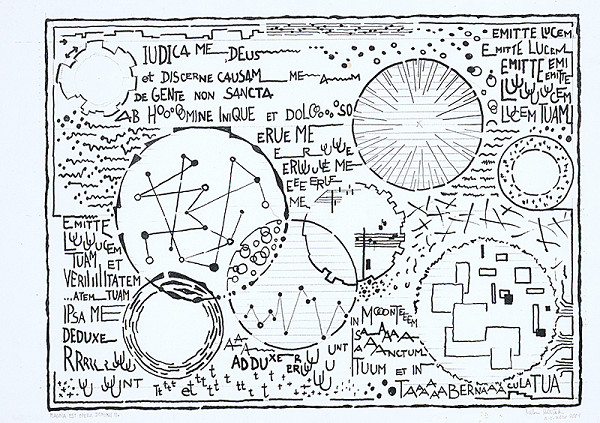 IUDICA ME DEUS
et DISCERNE CAUSAM ME A M
DE GENTE NON SANCTA
AB HOOOOMINE INIQUE ET DOLOOOOSO
ERUE ME
E RUUUE
ERUUUE ME
EEE ERUE
ME
EMITTE LUCEM
EMITTE LUCEM
EMITTE EMI
EMITTE
LUUUUCEM
LUCEM TUAM
EMITTE
LUUUUCEM
TUAM ET
VERIIIIITATEM
...ATEM TUAM
IPSA ME
DEDUXE
RRRR UU
UU UNT
Tttt et ttt
AAA
ADDUXE R
ERUU UNT
IN MOOONTEEEM
SAAAAA
AAANCTUM
TUUM ET IN
TAAAABERNAAACULA TUA